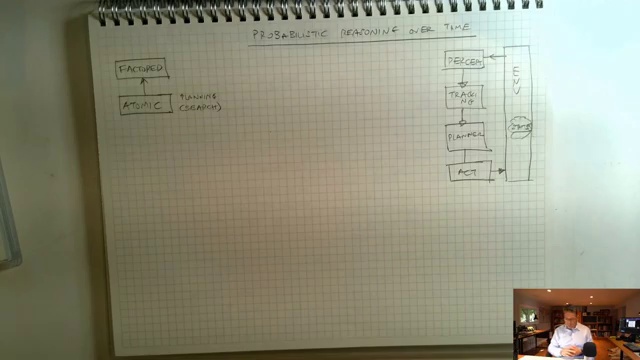 PROBABILISTIC REASONING OVER TIME
FACTORED
ATOMIC
PLANNING
(SEARCH)
TRACKI
NG
PLANNER
ACT
ENV
STATE